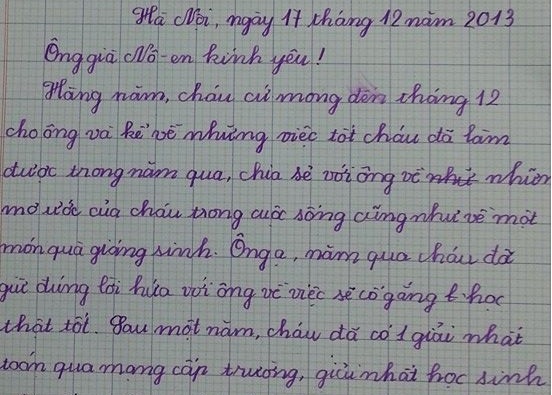 Hà Nội, ngày 17 tháng 12 năm 2013
Ông già Nô-en kính yêu!
Hằng năm, cháu cứ mong đến tháng 12
cho ông và kể về những việc tốt cháu đã làm
được trong năm qua, chia sẻ với ông về nhữ nhiên
mơ ước của cháu trong cuộc sống cũng như về một
món quà giáng sinh. Ông ạ, năm qua cháu đã
giữ đúng lời hứa với ông về việc sẽ cố gắng học
thật tốt. Sau một năm, cháu đã có 1 giải nhất
toán qua mạng cấp trường, giải nhất học sinh